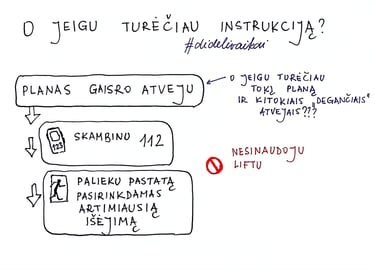 O JEIGU TURĖČIAU INSTRUKCIJĄ?
#didelivaikai
PLANAS GAISRO ATVEJU
O JEIGU TURĖČIAU
TOKĮ PLANĄ
IR KITOKIAIS „DEGANČIAIS“
ATVEJAIS???
123
SKAMBINU 112
NESINAUDOJU
LIFTU
PALIEKU PASTATĄ
PASIRINKDAMAS
ARTIMIAUSIĄ
IŠĖJIMĄ